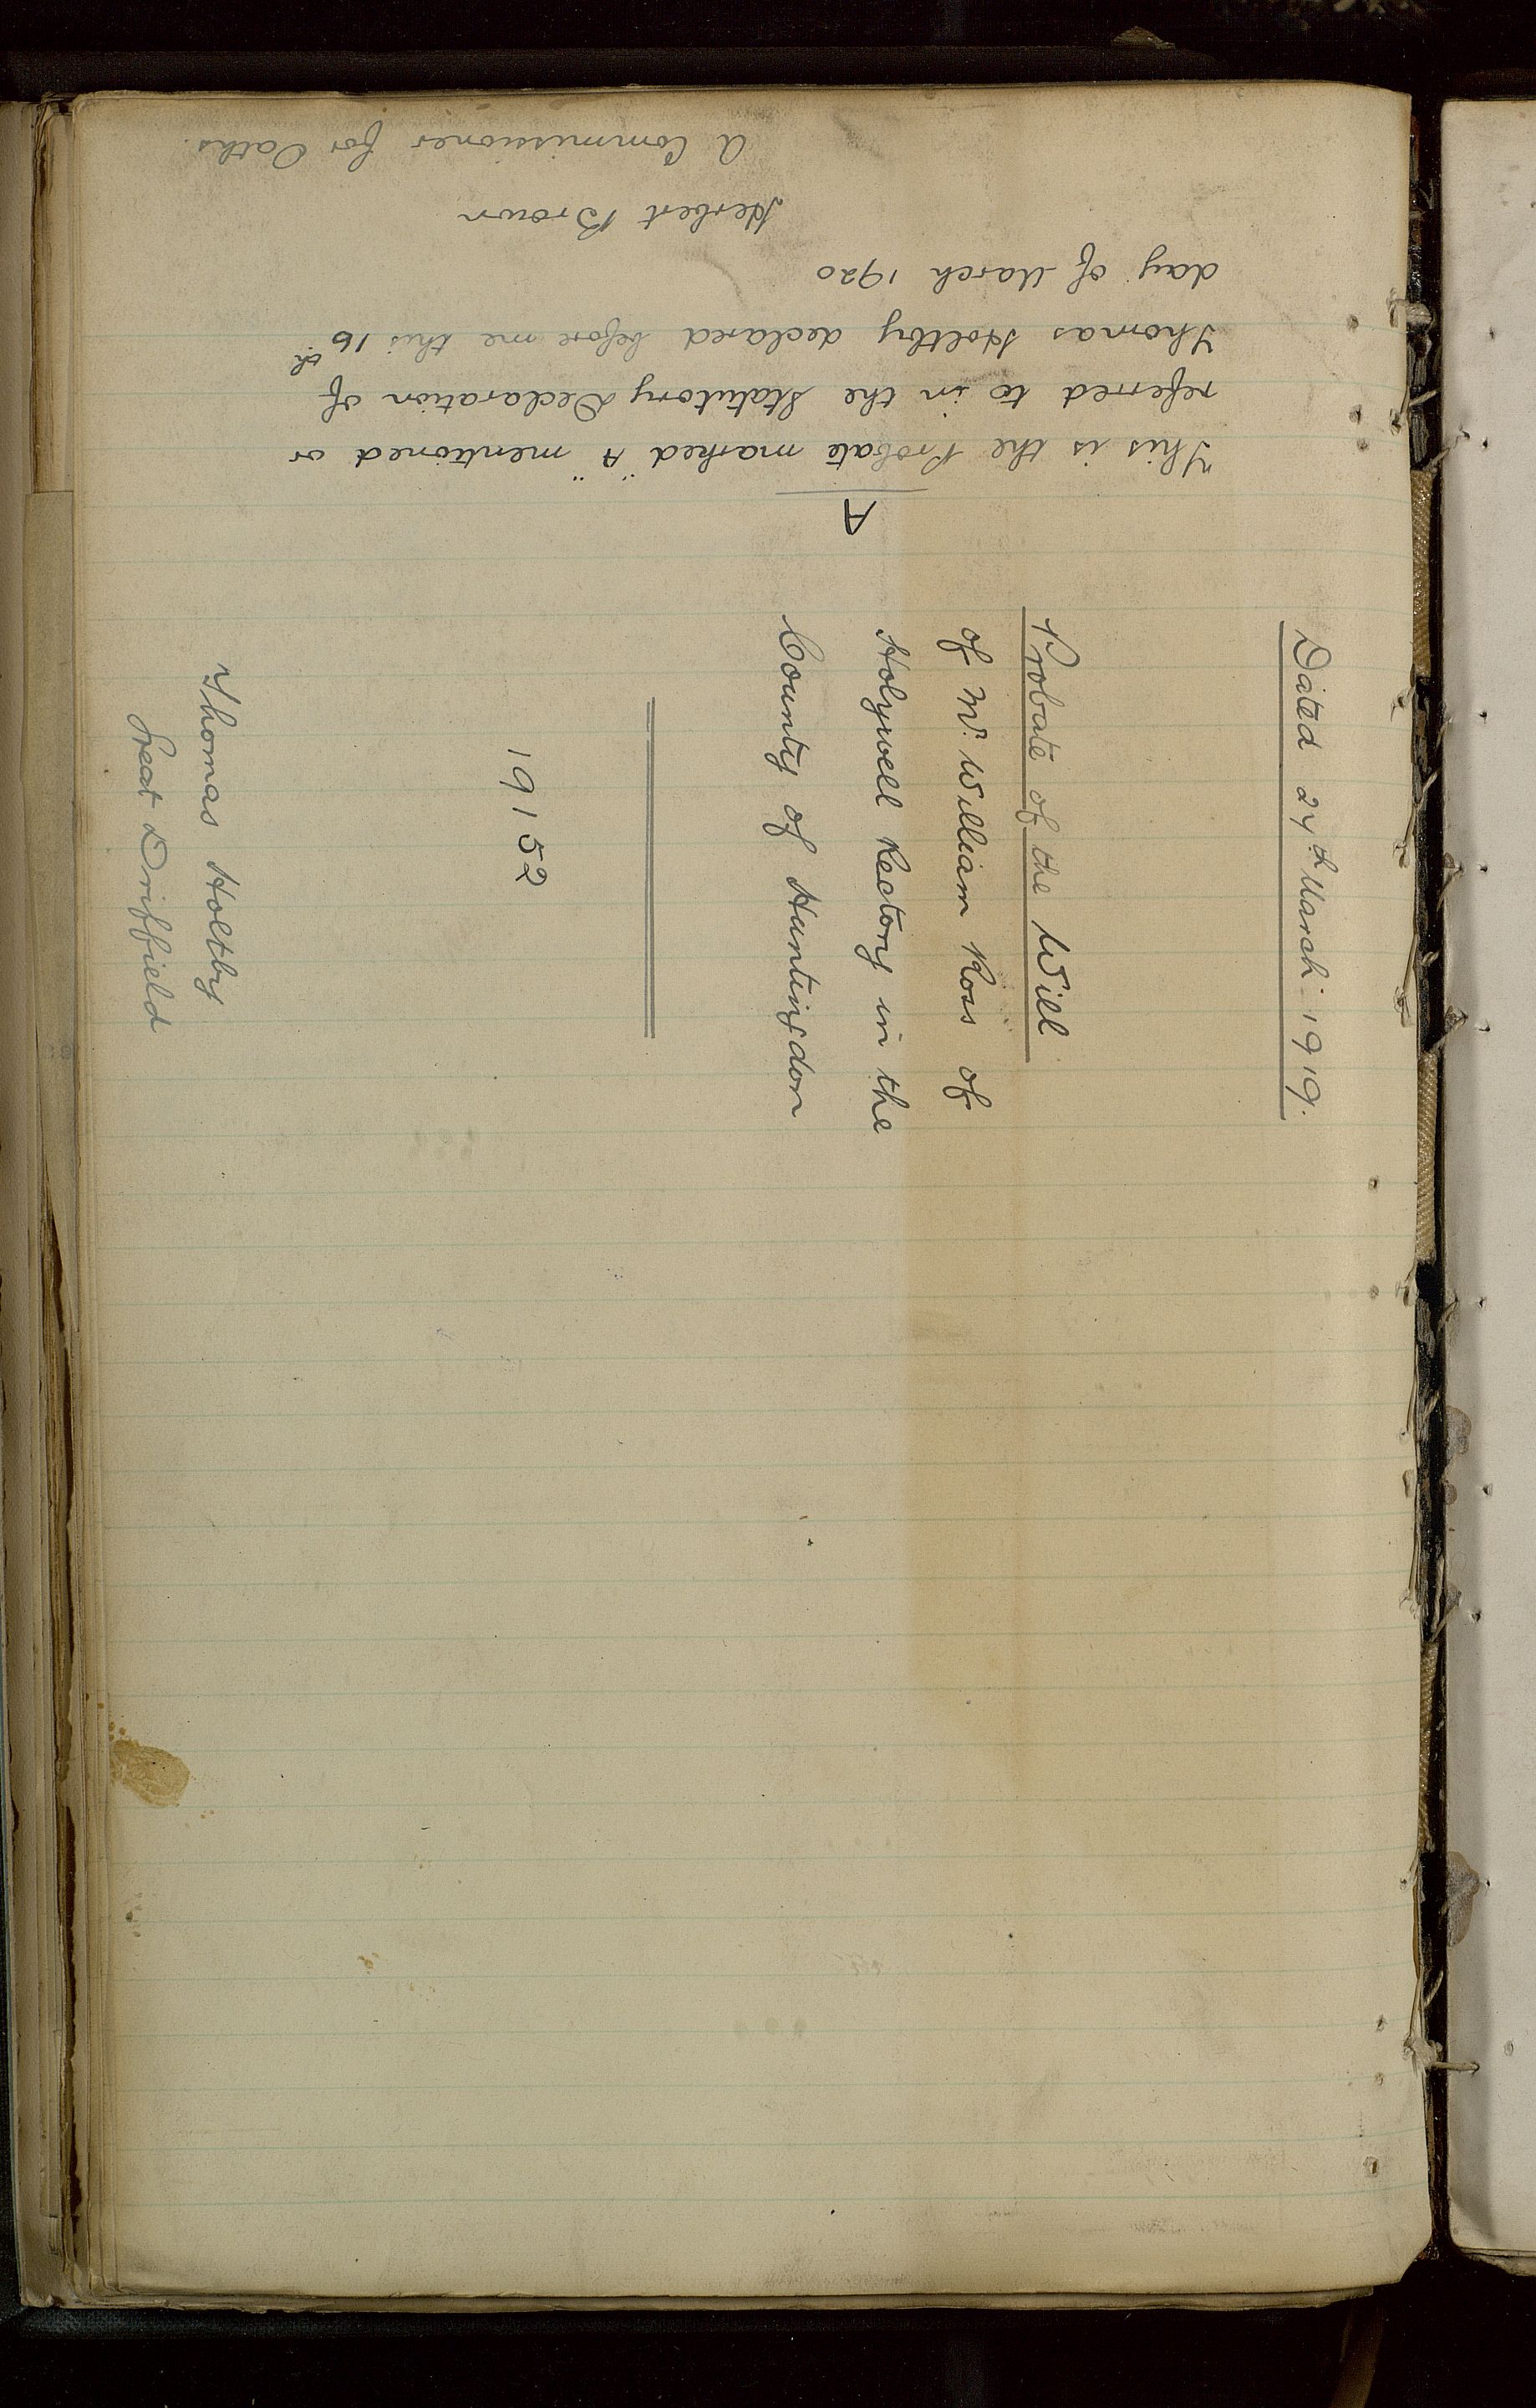 A
This is the Probate marked "A" mentioned or
referred to in the Statutory Declaration of
Thomas Holtby declared before me this 16th
day of March 1920
Herbert Brown
A Commissioner for Oaths.
Dated 24th March 1919.
Probate of the Will
of Mr. William Ross of
Holywell Rectory in the
County of Huntingdon
19152
Thomas Holtby
Great Driffield